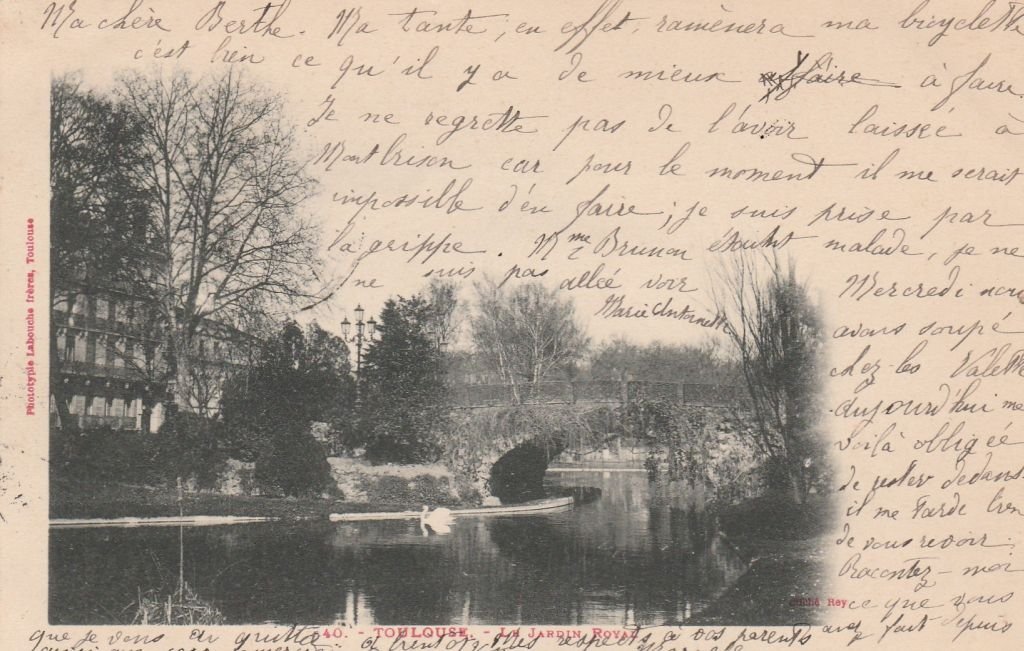 Ma chère Berthe. Ma tante, en effet, ramènera ma bicyclette
c'est bien ce qu'il y a de mieux à faire.
Je ne regrette pas de l'avoir laissée à
Montbrison car pour le moment il me serait
impossible d'en faire; je suis prise par
la grippe. Mme Brunon étant malade, je ne
ne suis pas allée voir
Marie Antoinette
Mercredi nous
avons soupé
chez les Valette
aujourd'hui me
voilà obligée
de rester dedans
il me tarde bien
de vous revoir.
Racontez-moi
ce que vous
avez fait depuis
que je vous ai quittée
Mes respects à vos parents
Phototypie Labouche frères, Toulouse
Cliché Rey
40. - TOULOUSE. - Le Jardin Royal